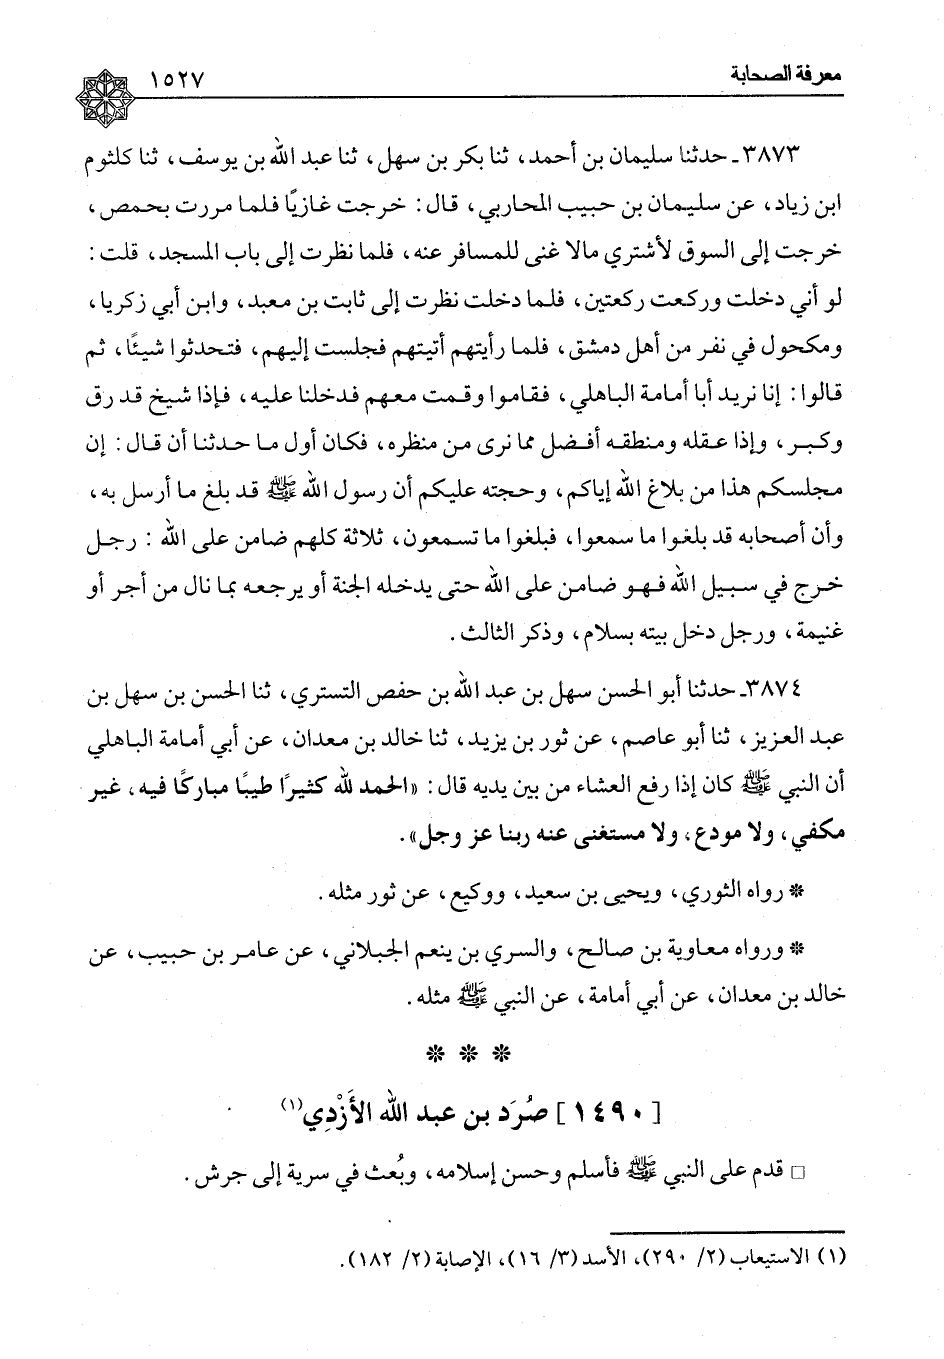 معرفة الصحابة ١٥٢٧
٣٨٧٣ـ حدثنا سليمان بن أحمد، ثنا بكر بن سهل، ثنا عبد الله بن يوسف، ثنا كلثوم
ابن زياد، عن سليمان بن حبيب المحاربي، قال: خرجت غازيًا فلما مررت بحمص،
خرجت إلى السوق لأشتري مالا غنى للمسافر عنه، فلما نظرت إلى باب المسجد، قلت:
لو أني دخلت وركعت ركعتين، فلما دخلت نظرت إلى ثابت بن معبد، وابن أبي زكريا،
ومكحول في نفر من أهل دمشق، فلما رأيتهم أتيتهم فجلست إليهم، فتحدثوا شيئًا، ثم
قالوا: إنا نريد أبا أمامة الباهلي، فقاموا وقمت معهم فدخلنا عليه، فإذا شيخ قد رق
وكبر، وإذا عقله ومنطقه أفضل مما نرى من منظره، فكان أول ما حدثنا أن قال: إن
مجلسكم هذا من بلاغ الله إياكم، وحجته عليكم أن رسول الله ﷺ قد بلغ ما أرسل به،
وأن أصحابه قد بلغوا ما سمعوا، فبلغوا ما تسمعون، ثلاثة كلهم ضامن على الله: رجل
خرج في سبيل الله فهو ضامن على الله حتى يدخله الجنة أو يرجعه بما نال من أجر أو
غنيمة، ورجل دخل بيته بسلام، وذكر الثالث.
٣٨٧٤ـ حدثنا أبو الحسن سهل بن عبد الله بن حفص التستري، ثنا الحسن بن سهل بن
عبد العزيز، ثنا أبو عاصم، عن ثور بن يزيد، ثنا خالد بن معدان، عن أبي أمامة الباهلي
أن النبي ﷺ كان إذا رفع العشاء من بين يديه قال: «الحمد لله كثيرًا طيبًا مباركًا فيه، غير
مكفي، ولا مودع، ولا مستغنى عنه ربنا عز وجل».
* رواه الثوري، ويحيى بن سعيد، ووكيع، عن ثور مثله.
* ورواه معاوية بن صالح، والسري بن ينعم الجبلاني، عن عامر بن حبيب، عن
خالد بن معدان، عن أبي أمامة، عن النبي ﷺ مثله.
* * *
[١٤٩٠] صُرَد بن عبد الله الأَزْدِي(١)
□ قدم على النبي ﷺ فأسلم وحسن إسلامه، وبُعث في سرية إلى جرش.
(١) الاستيعاب (٢/ ٢٩٠)، الأسد (٣/ ١٦)، الإصابة (٢/ ١٨٢).